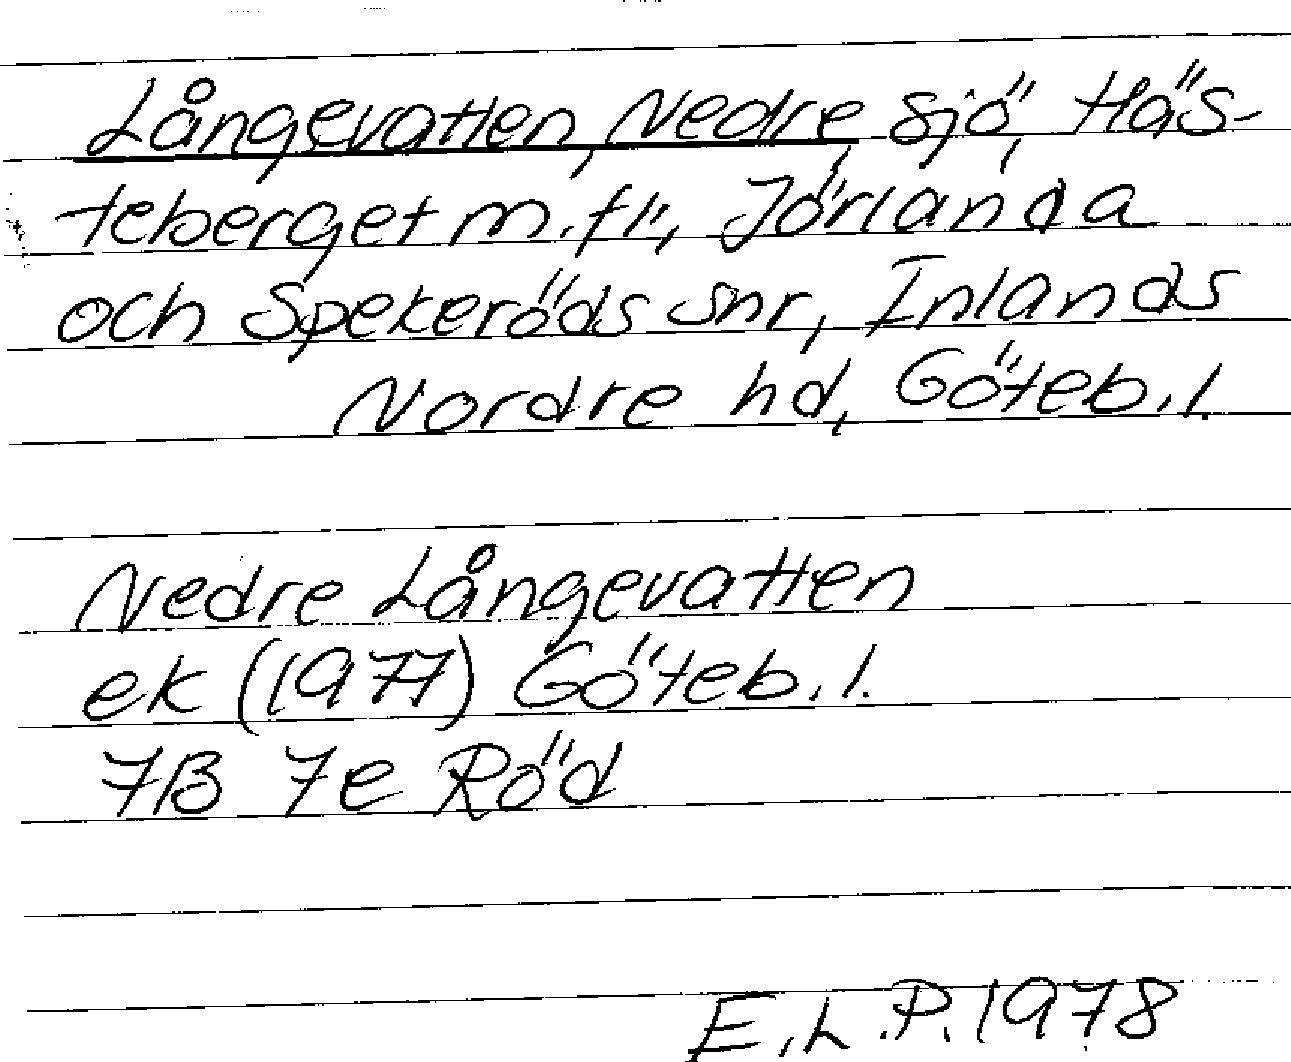 Långevatten, Nedre, sjö, Häs-
teberget m.fl., Jörlanda
och Spekeröds snr, Inlands
Nordre hd, Göteb.l.
Nedre Långevatten
ek (1977) Göteb.l.
7B 7e Röd
E.L.P. 1978